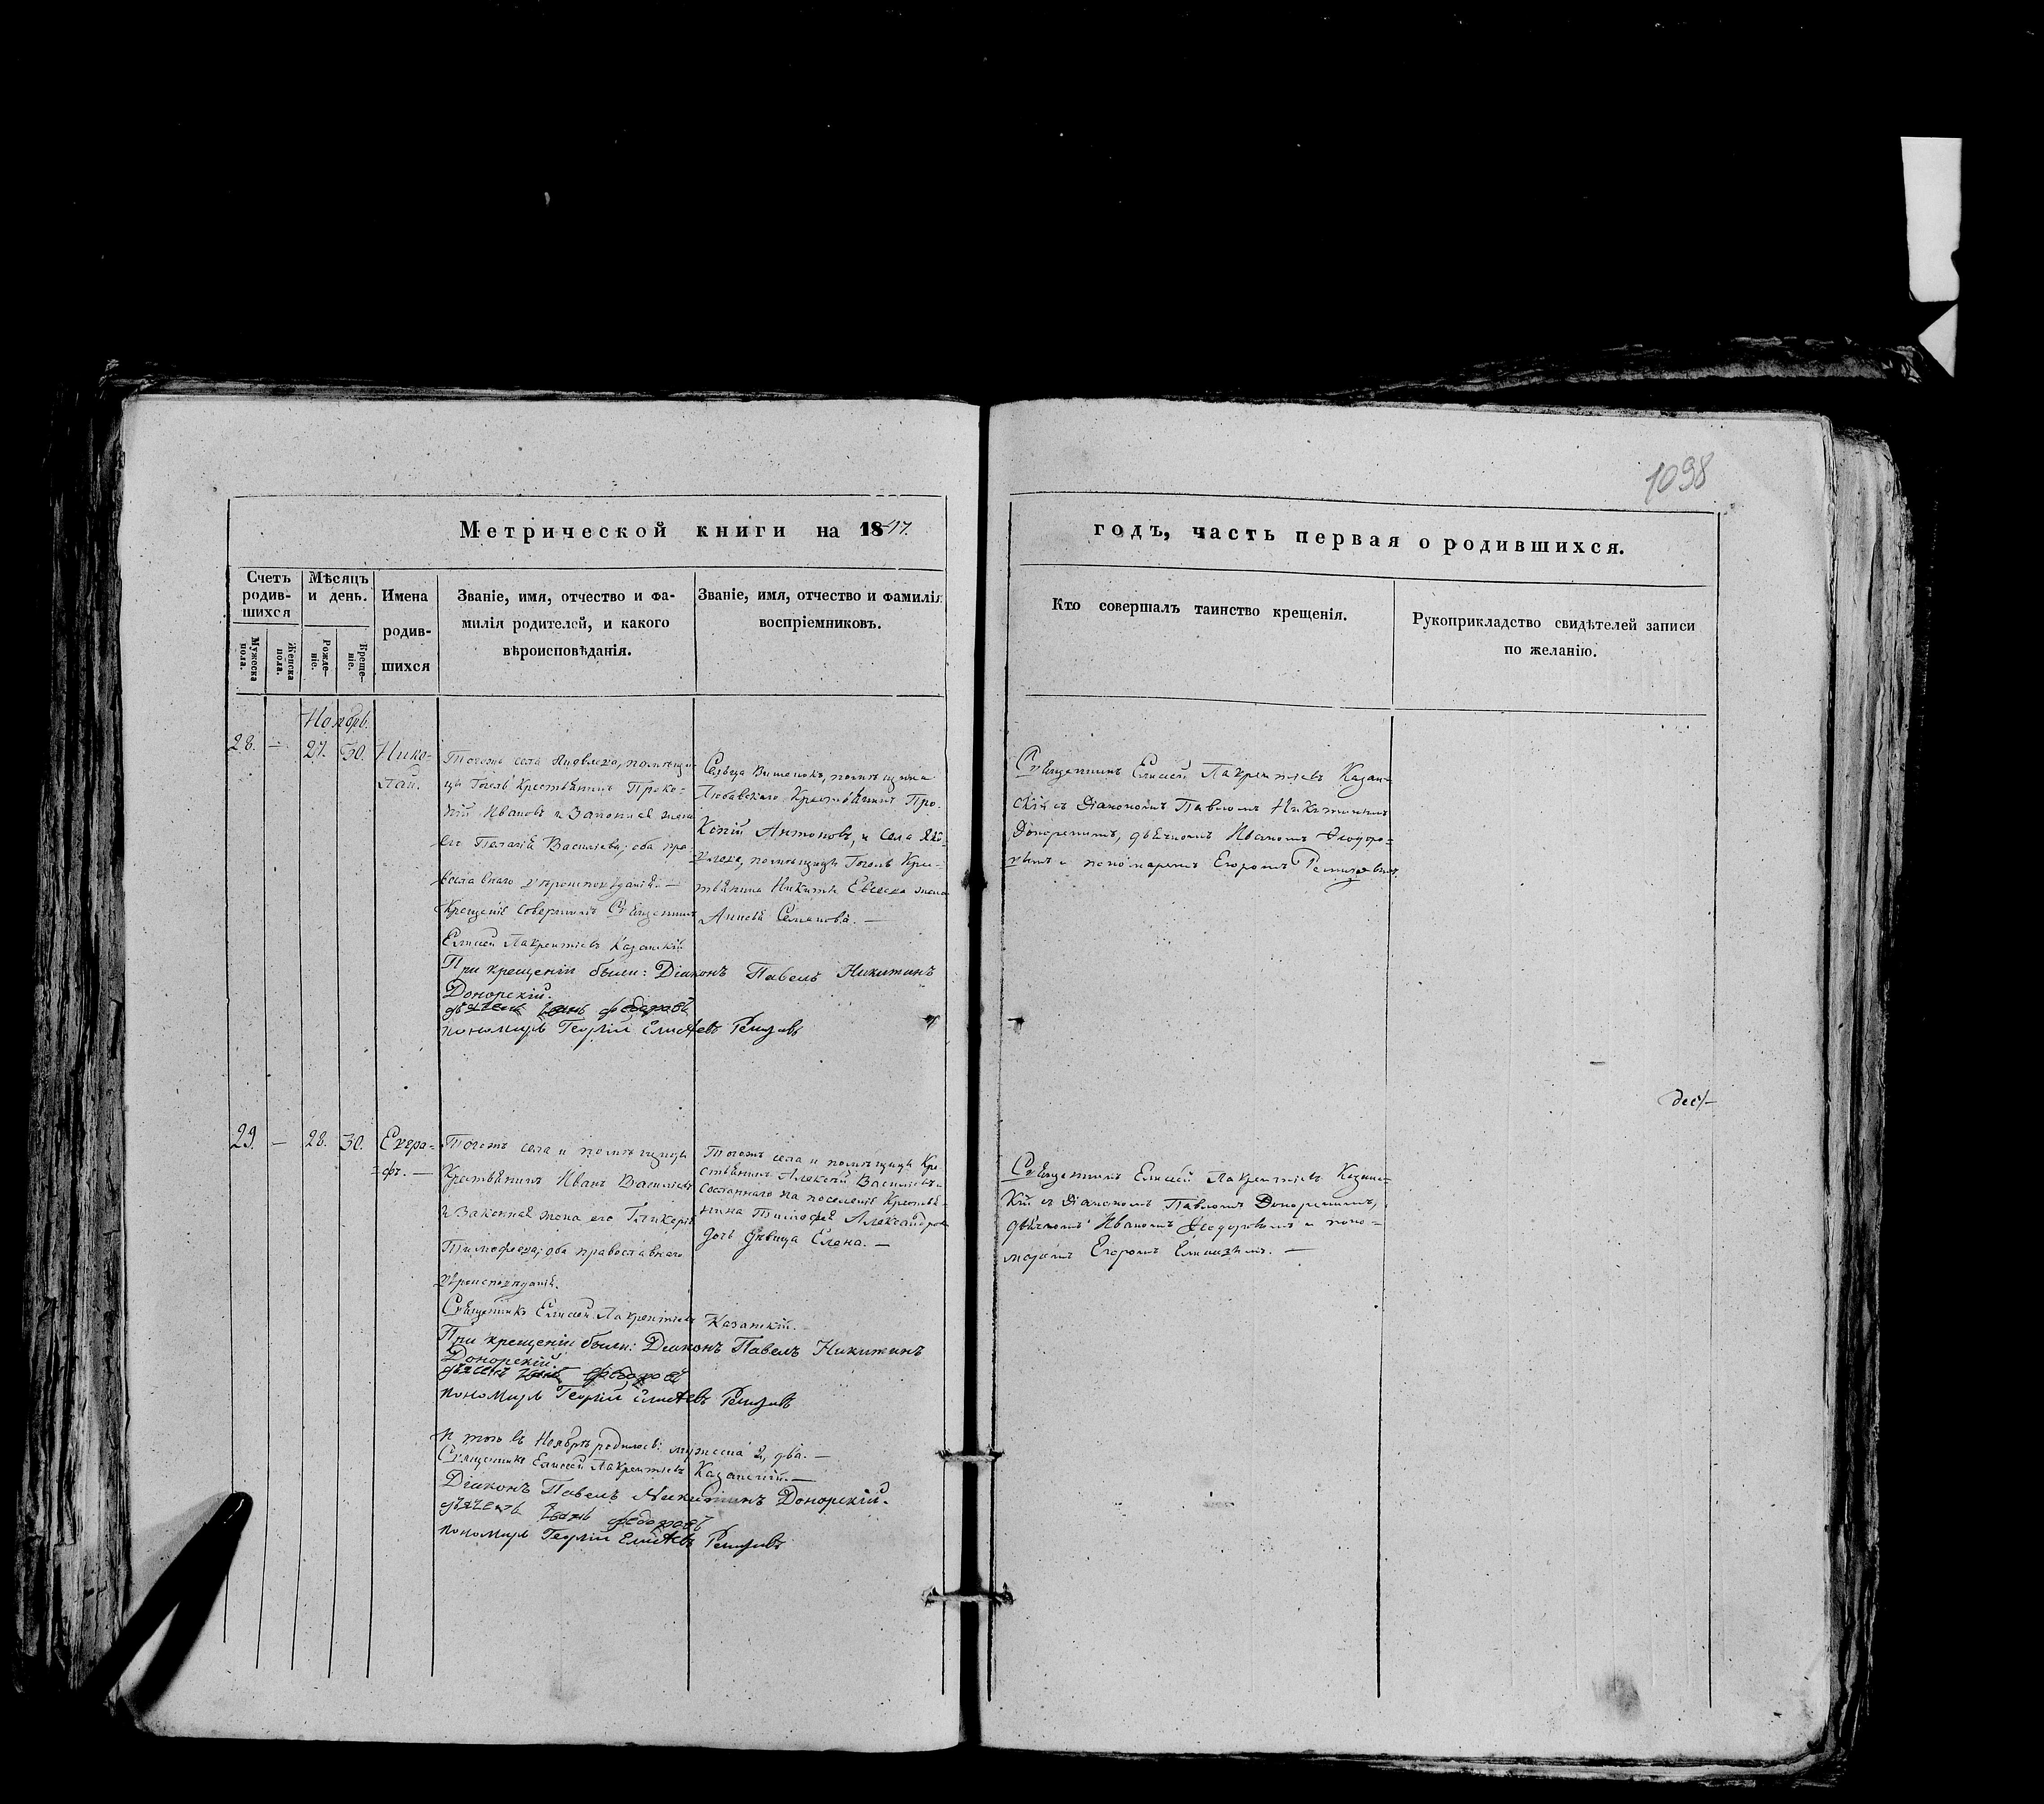 1098
Метрической книги на 1847.
годъ, часть первая о родившихся.
Счетъ родив-шихся
Мужеска пола.
Женска пола.
Мѣсяцъ и день.
Рожде-ніе.
Креще-ніе.
Имена родив-шихся
Званіе, имя, отчество и фа-
милія родителей, и какого
вѣроисповѣданія.
Званіе, имя, отчество и фамилія
воспріемниковъ.
Кто совершалъ таинство крещенія.
Рукоприкладство свидѣтелей записи
по желанію.
Ноября.
28. — 27. 30. Нико-
лай.
Тогожъ села помѣщи-
цы Крестьянинъ Проко-
пій Ивановъ и Законная жена
его Пелагія Васильева; оба пра-
вославнаго вѣроисповѣданія. —
Крещеніе совершилъ Священникъ
Елисей Лаврентіевъ Казанскій
При крещеніи были: Діаконъ Павелъ Никитинъ
Донорскій.
дьячекъ Іванъ федоровъ
пономарь Георгій Елисѣевъ Ремизовъ
Сельца помѣщика
Крестьянинъ Про-
копій Антоновъ, и села
помѣщицы Кре-
стьянина Никиты жена
Семенова. —
Священникъ Елисей Лаврентіевъ Казан-
скій съ Діакономъ Павломъ Никитинымъ
Донорскимъ, дьячкомъ Иваномъ Ѳеодоро-
вымъ и пономаремъ Егоромъ Ремизовымъ.
29. — 28. 30. Евгра-
фъ. —
Тогожъ села и помѣщицы
Крестьянинъ Иванъ Васильевъ
и Законная жена его Гликерія
Тимофеева; оба православнаго
вѣроисповѣданія.
Священникъ Елисей Лаврентіевъ Казанскій.
При крещеніи были: Діаконъ Павелъ Никитинъ
Донорскій.
дьячекъ Іванъ федоровъ
пономарь Георгій Елисѣевъ Ремизовъ
Тогожъ села и помѣщицы Кре-
стьянинъ Алексѣй Васильевъ и
на поселеніе Крестья-
нина Тимофея Александрова
дочь дѣвица Елена. —
Священникъ Елисей Лаврентіевъ Казанс-
кій съ Діакономъ Павломъ Донорскимъ,
дьячкомъ Иваномъ Ѳеодоровымъ и поно-
маремъ Егоромъ —
Ноябрѣ родилось: мужеска 2, два. —
Священникъ Елисей Лаврентіевъ Казанскій. —
Діаконъ Павелъ Никитинъ Донорскій.
дьячекъ Іванъ федоровъ
пономарь Георгій Елисѣевъ Ремизовъ